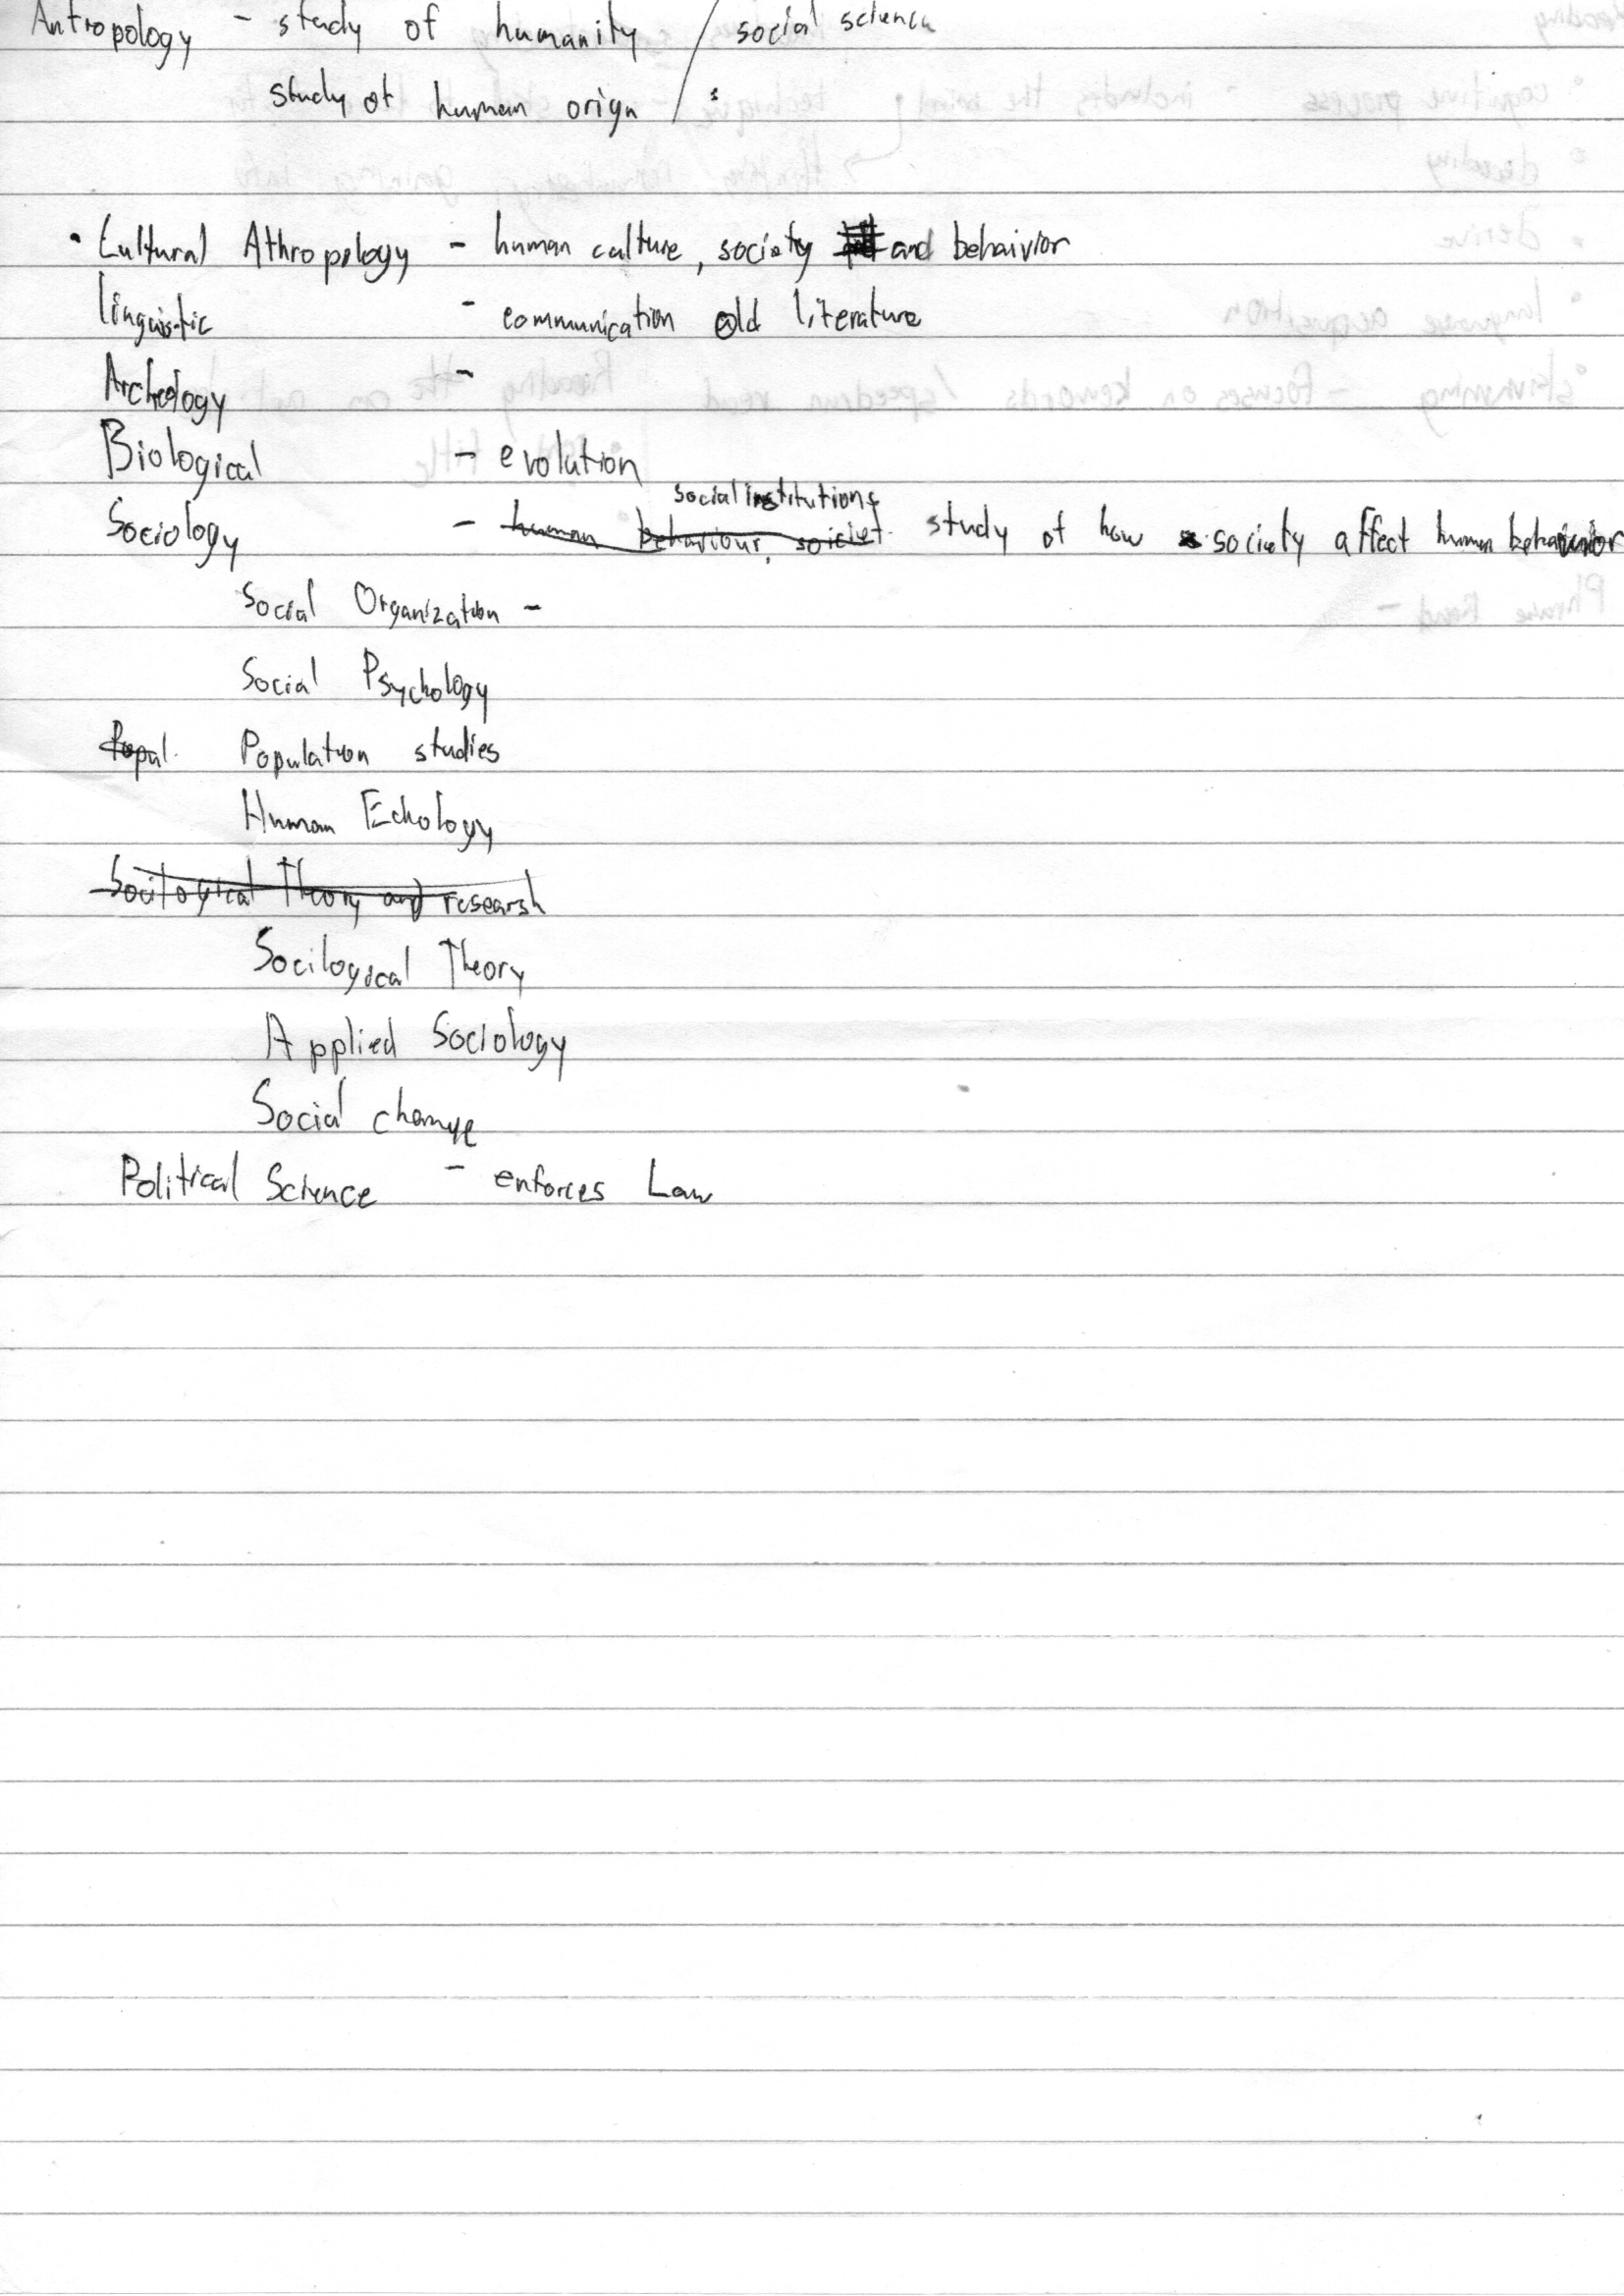 Antropology - study of humanity / social science
study of human orign / :
• Cultural Athropology - human culture, society and behaivior
linguistic - communication old literature
Archeology -
Biological - evolution
social institutions
Sociology - human behaviour, sociciet study of how society affect human behaivior
Social Organization -
Social Psychology
Popul. Population studies
Human Echology
Socilogical Theory and research
Socilogical Theory
Applied Sociology
Social change
Political Science - enforces Law